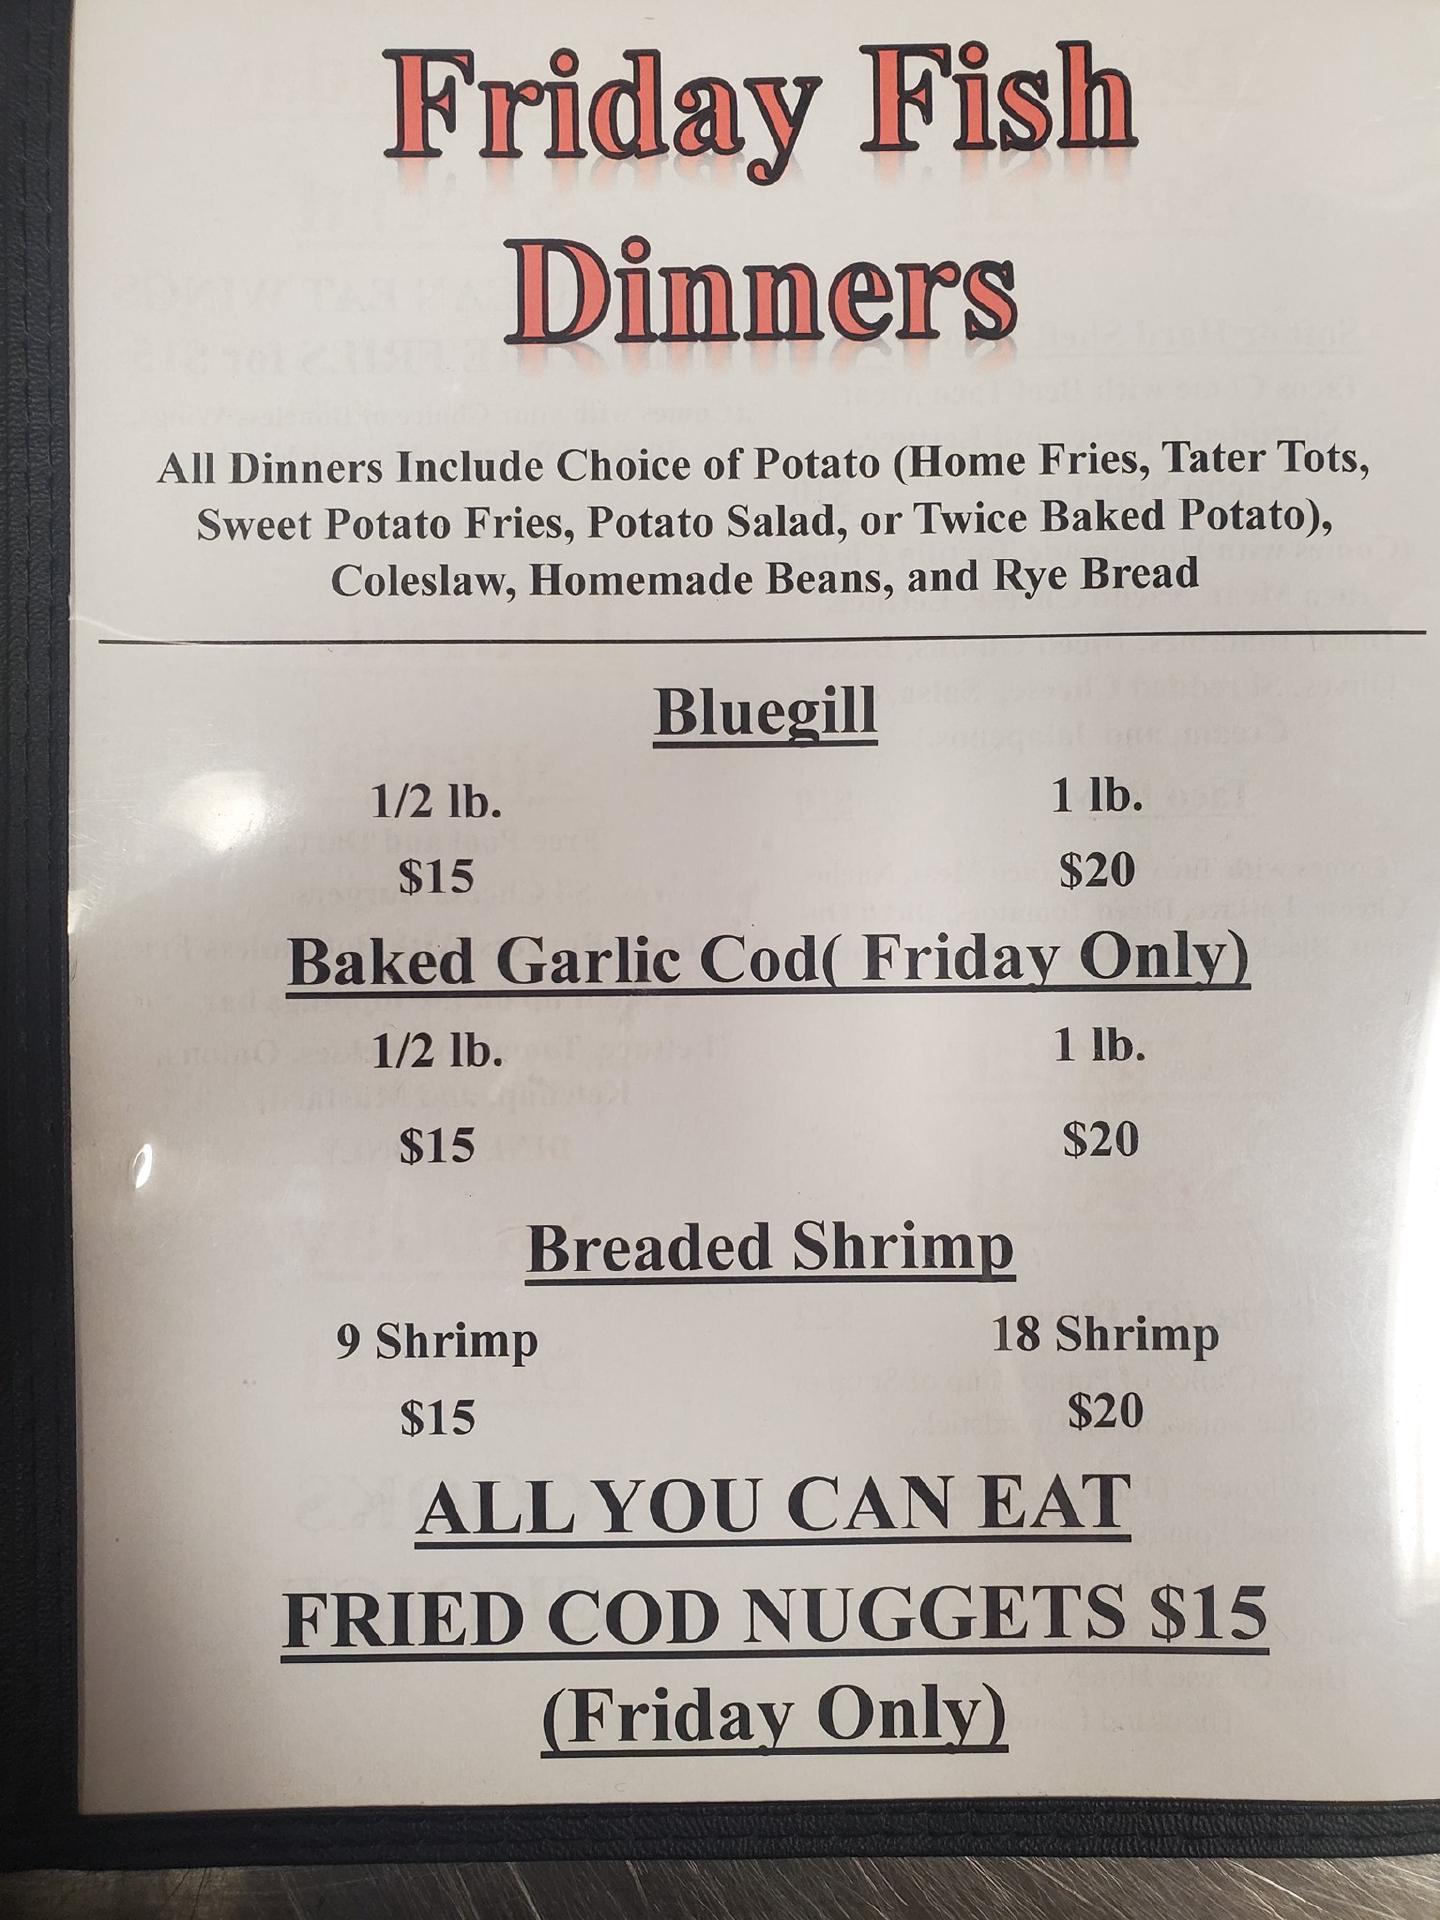 Friday Fish
Dinners
All Dinners Include Choice of Potato (Home Fries, Tater Tots,
Sweet Potato Fries, Potato Salad, or Twice Baked Potato),
Coleslaw, Homemade Beans, and Rye Bread
Bluegill
1/2 lb. 1 lb.
$15 $20
Baked Garlic Cod( Friday Only)
1/2 lb. 1 lb.
$15 $20
Breaded Shrimp
9 Shrimp 18 Shrimp
$15 $20
ALL YOU CAN EAT
FRIED COD NUGGETS $15
(Friday Only)